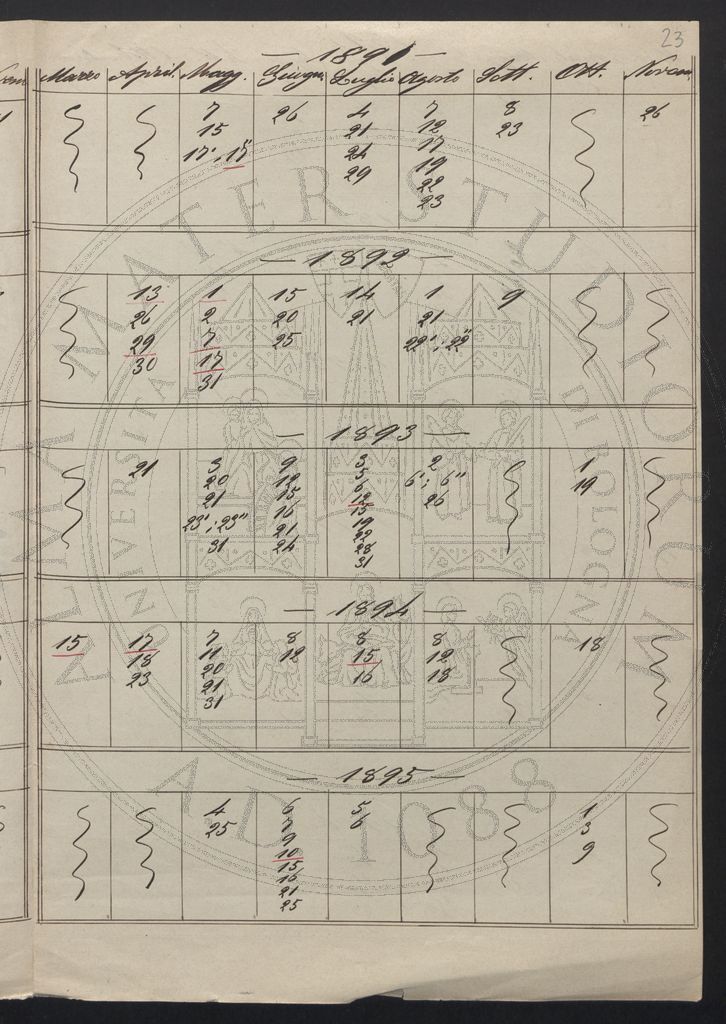 23
— 1891 —
Marzo April. Magg. Giugn. Luglio Agosto Sett. Ott. Novem.
7 26 4 7 8 26
15 21 12 23
17', 17" 24 17
29 19
22
23
— 1892 —
13 1 15 14 1 9
26 2 20 21 21
29 7 25 22'; 22"
30 17
31
— 1893 —
21 3 9 3 2 1
20 12 5 6'; 6" 19
21 15 6 26
23'; 23" 16 12
31 21 15
24 19
22
28
31
— 1894 —
15 17 7 8 8 8 18
18 11 12 15 12
23 20 16 18
21
31
— 1895 —
4 6 5 1
25 7 6 3
9 9
10
15
16
21
25
ALMA MATER STUDIORUM
UNIVERSITA DI BOLOGNA
A.D. 1088